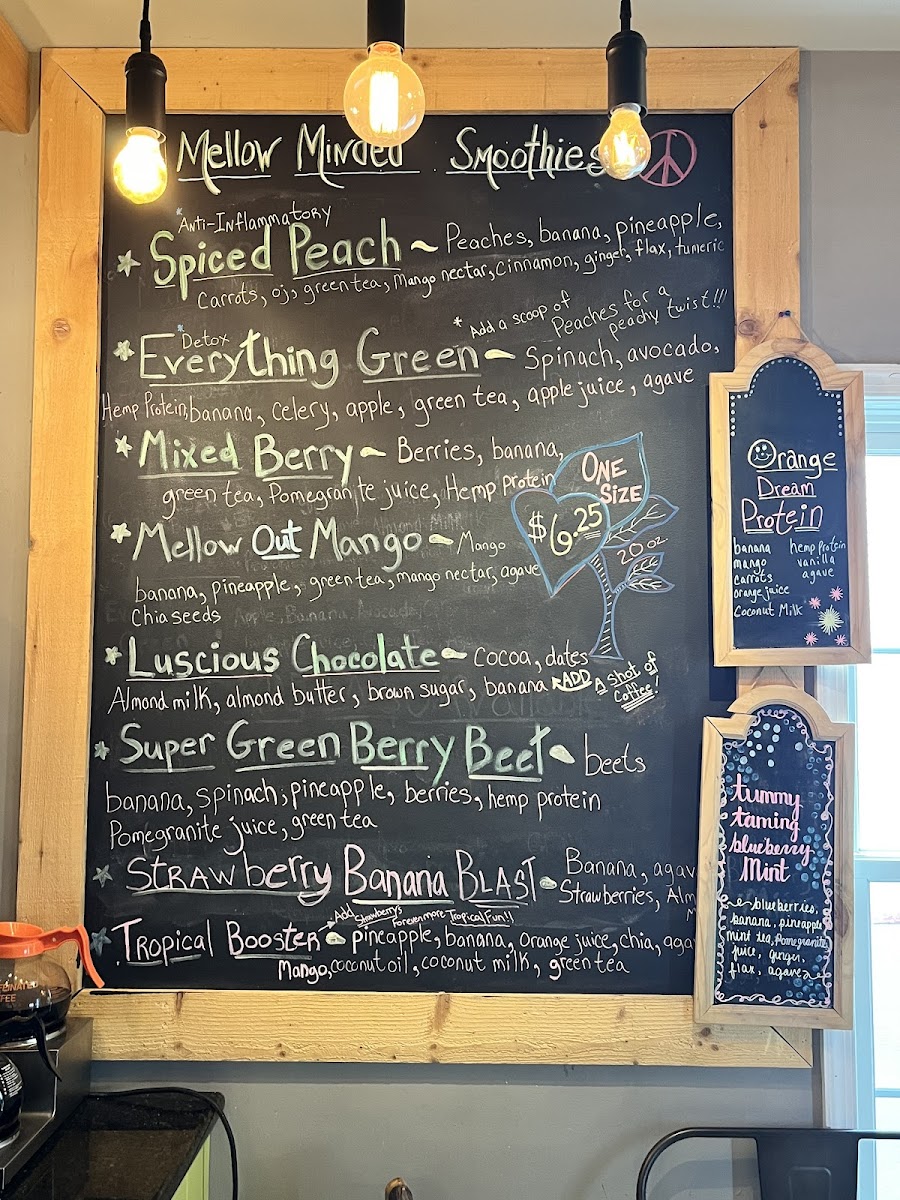 Mellow Minded Smoothies
*Anti-Inflammatory
Spiced Peach ~ Peaches, banana, pineapple,
Carrots, oj, green tea, Mango nectar, Cinnamon, ginger, flax, tumeric
* Add a scoop of
Peaches for a
peachy twist!!!
*Detox
Everything Green ~ Spinach, avocado,
Hemp Protein, banana, celery, apple, green tea, apple juice, agave
Mixed Berry ~ Berries, banana,
green tea, Pomegranite juice, Hemp Protein
ONE
SIZE
$6.25
20 oz
Mellow Out Mango ~ Mango
banana, pineapple, green tea, mango nectar, agave
Chia seeds
Luscious Chocolate ~ Cocoa, dates
Almond milk, almond butter, brown sugar, banana *ADD
A shot of
Coffee!
Super Green Berry Beet ~ beets
banana, spinach, pineapple, berries, hemp protein
Pomegranite juice, green tea
Strawberry Banana Blast ~ Banana, agav
Strawberries, Alm
M
Add Strawberrys
Forevermore Tropical Fun!!
Tropical Booster ~ pineapple, banana, orange juice, chia, aga
Mango, coconut oil, coconut milk, green tea
Orange
Dream
Protein
banana
mango
carrots
orange juice
Coconut Milk
hemp protein
vanilla
agave
tummy
taming
blueberry
Mint
blueberries,
banana, pineapple
mint tea, Pomegranite
juice, ginger,
flax, agave